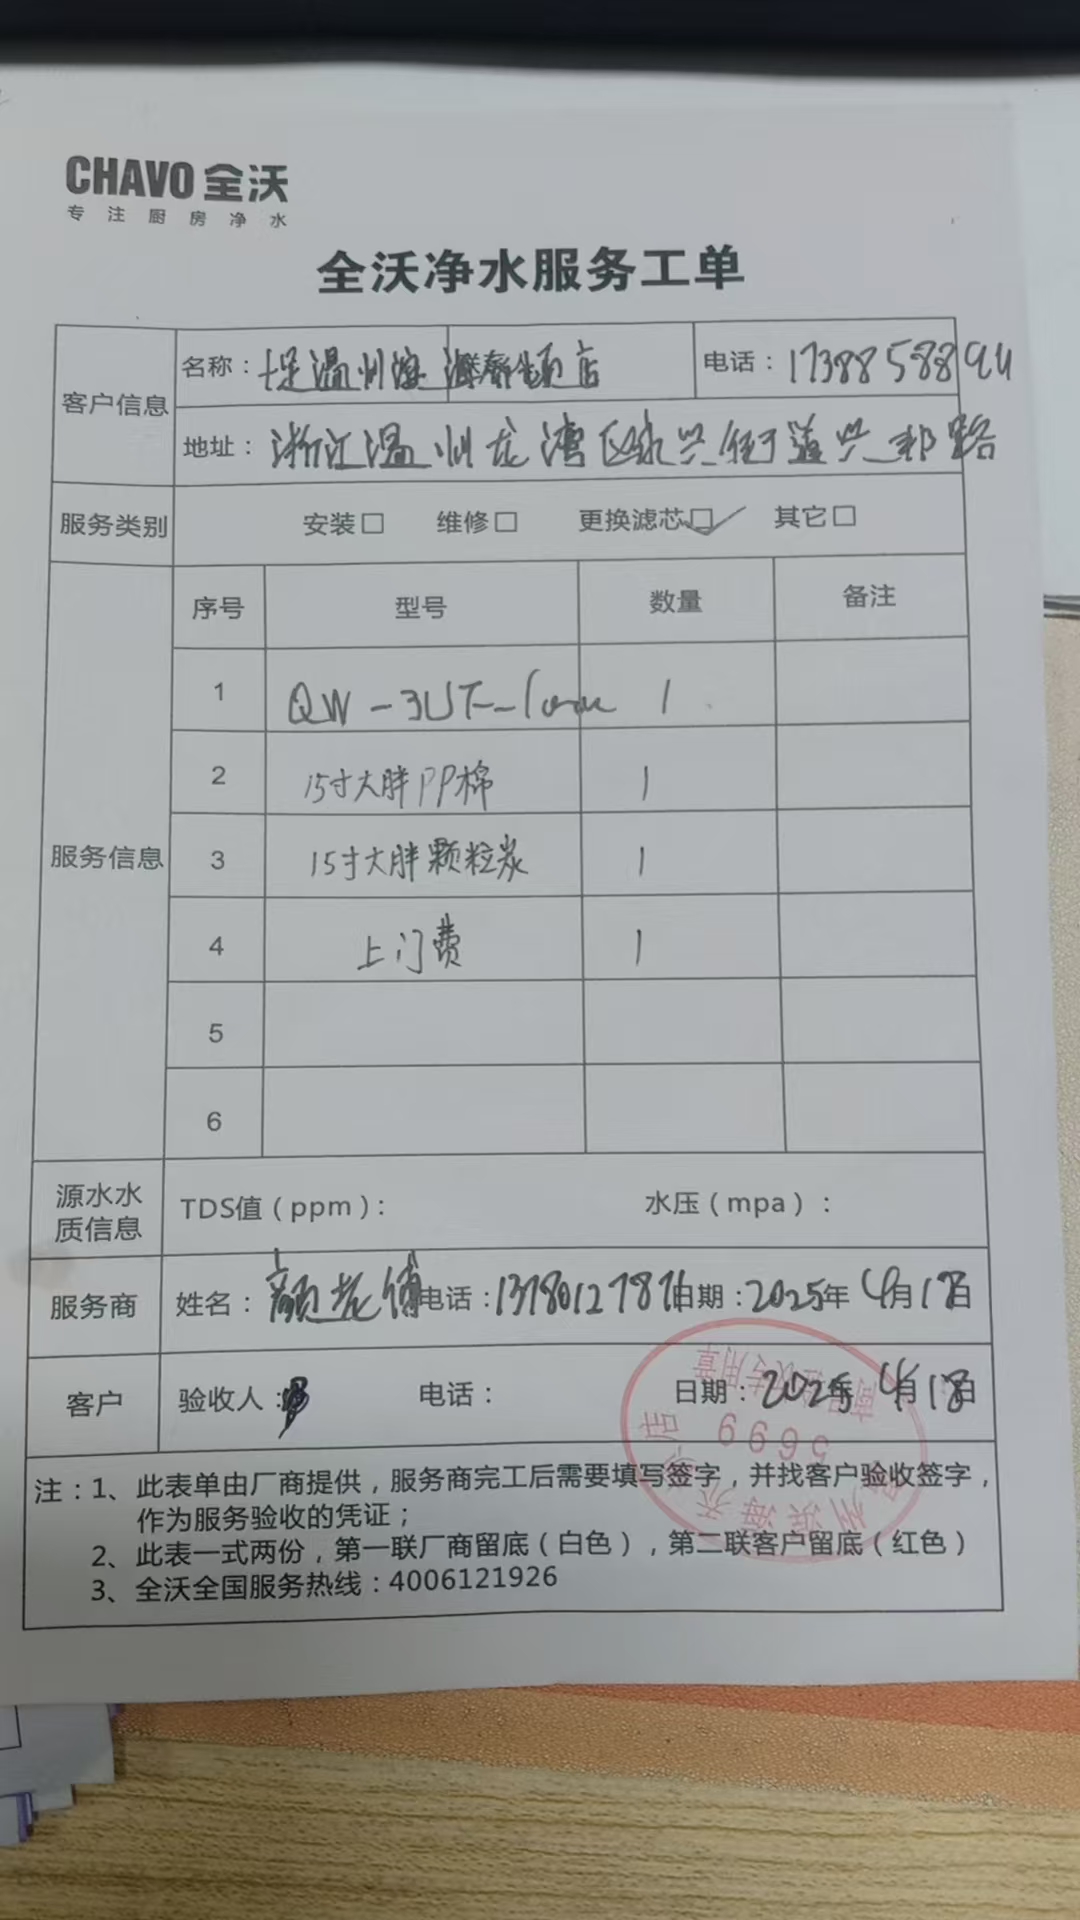 CHAVO 全沃
专注厨房净水
全沃净水服务工单
客户信息
名称： 温州滨海 店
电话：17388588944
地址：浙江温州龙湾区永兴街道兴邦路
服务类别 安装□ 维修□ 更换滤芯□✓ 其它□
服务信息
序号 型号 数量 备注
1 QW-3UF- 1
2 15寸大胖PP棉 1
3 15寸大胖颗粒炭 1
4 上门费 1
5
6
源水水质信息 TDS值（ppm）： 水压（mpa）：
服务商 姓名：颜 电话： 日期：2025年4月17日
客户 验收人： 电话： 日期：2025年4月17日
5699
州滨海
注：1、此表单由厂商提供，服务商完工后需要填写签字，并找客户验收签字，
作为服务验收的凭证；
2、此表一式两份，第一联厂商留底（白色），第二联客户留底（红色）
3、全沃全国服务热线：4006121926